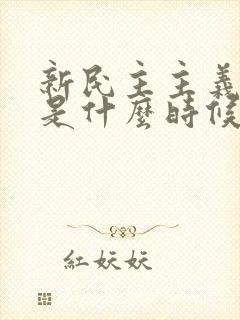 新民主主義
是什麼時候
紅妖妖